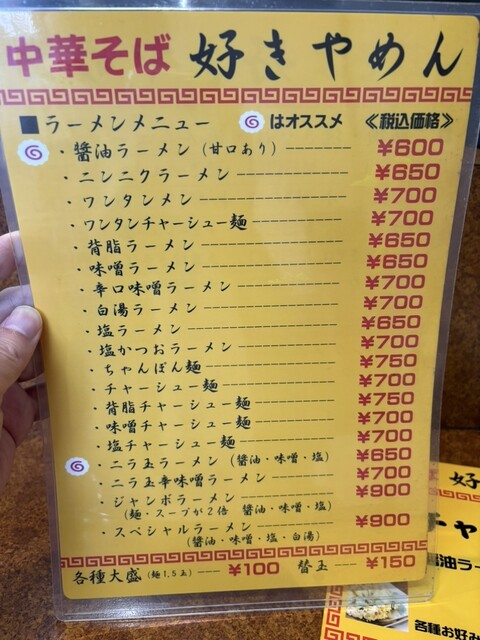 中華そば 好きやめん
■ラーメンメニュー はオススメ 《税込価格》
・醬油ラーメン (甘口あり) ------- ¥600
・ニンニクラーメン ------- ¥650
・ワンタンメン ------- ¥700
・ワンタンチャーシュー麺 ------- ¥700
・背脂ラーメン ------- ¥650
・味噌ラーメン ------- ¥650
・辛口味噌ラーメン ------- ¥700
・白湯ラーメン ------- ¥700
・塩ラーメン ------- ¥650
・塩かつおラーメン ------- ¥700
・ちゃんぽん麺 ------- ¥750
・チャーシュー麺 ------- ¥700
・背脂チャーシュー麺 ------- ¥750
・味噌チャーシュー麺 ------- ¥700
・塩チャーシュー麺 ------- ¥700
・ニラ玉ラーメン (醬油・味噌・塩) ¥650
・ニラ玉辛味噌ラーメン ------- ¥700
・ジャンボラーメン ------- ¥900
(麺・スープが2倍 醬油・味噌・塩)
・スペシャルラーメン ------- ¥900
(醬油・味噌・塩・白湯)
各種大盛 (麺1,5玉) --- ¥100 替玉 --- ¥150
好
醬油ラー
各種お好み